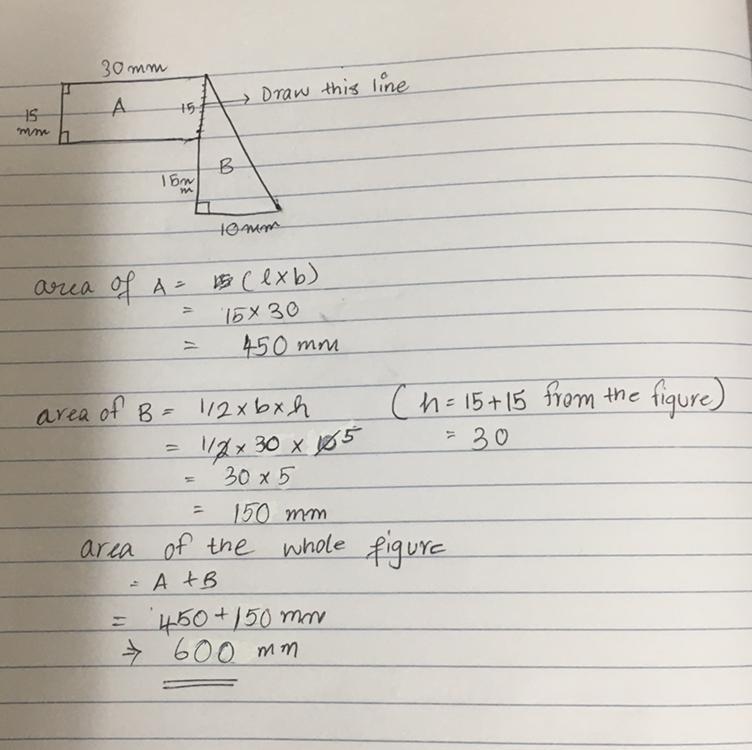 30mm
15 mm
A
15
→ Draw this line
15m m
B
10mm
area of A = (l×b)
= 15×30
= 450 mm
area of B = 1/2×b×h
(h = 15+15 from the figure)
= 1/2 × 30 × 10 5
= 30
= 30 × 5
= 150 mm
area of the whole figure
= A +B
= 450+150 mm
⇒ 600 mm